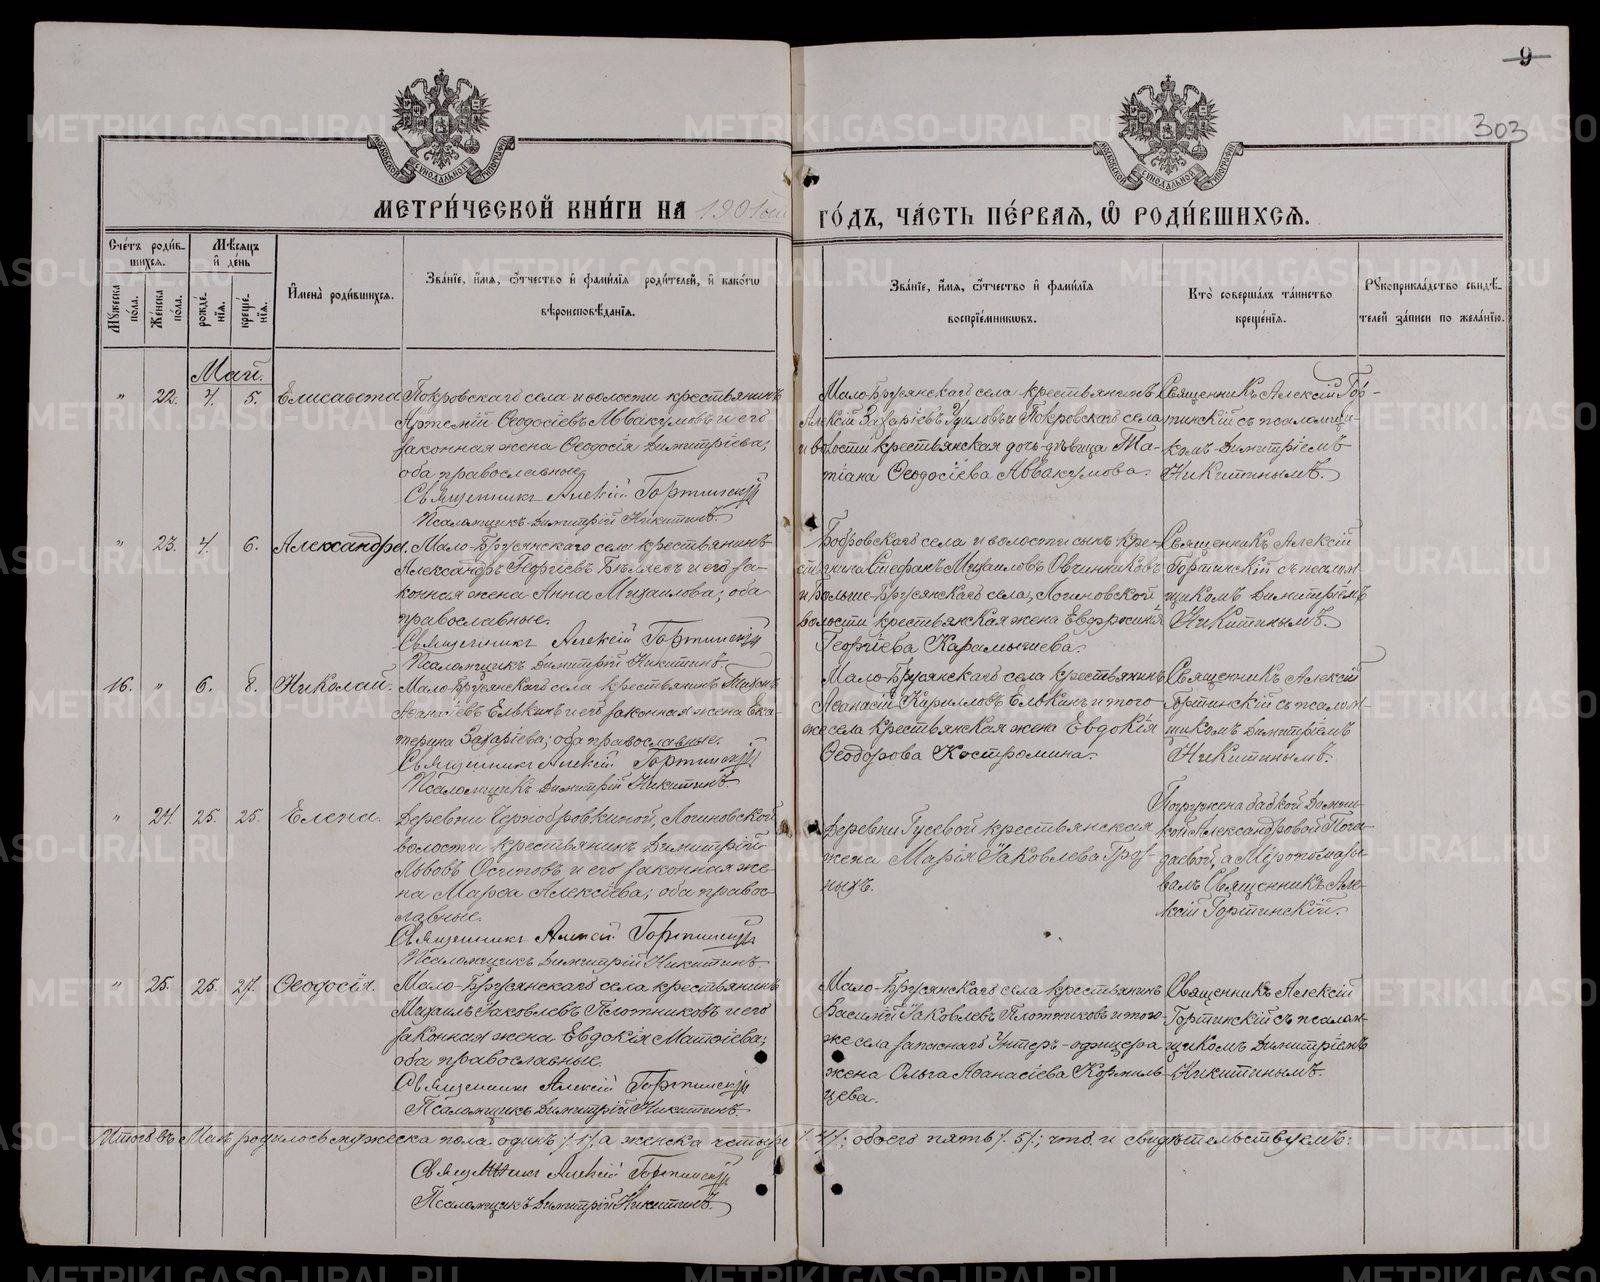 9
303
МЕТРИ́ЧЕСКОЙ КНИ́ГИ НА 1901ый ГО́ДЪ, ЧА́СТЬ ПЕ́РВАѦ, Ѽ РОДИ́ВШИХСѦ.
Сче́тъ роди́в-
шихсѧ.
Мѣсѧцъ
и҆ де́нь
Мꙋжеска по́ла.
Же́нска по́ла.
рожде́-
нїѧ.
креще́-
нїѧ.
И҆мена̀ роди́вшихсѧ.
Зва́нїе, и҆́мѧ, ѻ҆́тчество и҆ фами́лїѧ роди́телей, и҆ како́гѡ
вѣроисповѣ́данїѧ.
Зва́нїе, и҆́мѧ, ѻ҆́тчество и҆ фами́лїѧ
воспрїе́мникѡвъ.
Кто̀ соверша́лъ та́инство
креще́нїѧ.
Рꙋкоприкла́дство свидѣ́-
телей за́писи по жела́нїю.
Май.
" 22. 4. 5. Елисавета
Покровскаго села и волости крестьянинъ
Артемій Ѳеодосіевъ Аввакумовъ и его
законная жена Ѳеодосія Димитріева;
оба православные
Священникъ Алексій Гортинскій
Псаломщикъ Димитрій Никитинъ.
Мало-Брусянскаго села крестьянинъ
Алексій Захаріевъ и Покровскаго села
и волости крестьянская дочь-дѣвица Ма-
тіана Ѳеодосіева Аввакумова.
Священникъ Алексій Гор-
тинскій съ псаломщи-
комъ Димитріемъ
Никитинымъ.
" 23. 4. 6. Александра.
Мало-Брусянскаго села крестьянинъ
Александръ Георгіевъ и его за-
конная жена Анна Михаилова; оба
православные.
Священникъ Алексій Гортинскій
Псаломщикъ Димитрій Никитинъ
Бобровскаго села и волости сынъ кре-
стьянина Стефанъ Михаиловъ Овчинниковъ
и Больше-Брусянскаго села, Логиновской
волости крестьянская жена Евфросинія
Георгіева Карамышева.
Священникъ Алексій
Гортинскій съ псалом-
щикомъ Димитріемъ
Никитинымъ.
16. " 6. 8. Николай.
Мало-Брусянскаго села крестьянинъ Тихонъ
Аѳанасіевъ Елькинъ и его законная жена Ека-
терина Захаріева; оба православные.
Священникъ Алексій Гортинскій
Псаломщикъ Димитрій Никитинъ.
Мало-Брусянскаго села крестьянинъ
Аѳанасій Кирилловъ Елькинъ и того
же села крестьянская жена Евдокія
Ѳеодорова Костромина.
Священникъ Алексій
Гортинскій съ псалом-
щикомъ Димитріемъ
Никитинымъ.
" 24. 25. 25. Елена.
Деревни Чернобровкиной, Логиновской
волости крестьянинъ Димитрій
Львовъ Осиповъ и его законная же-
на Марѳа Алексіева; оба правос-
лавные.
Священникъ Алексій Гортинскій
Псаломщикъ Димитрій Никитинъ.
Деревни Гусевой крестьянская
жена Марія Іаковлева Гроз-
ныхъ.
Погружена бабкой
Александровой
а Мѵропомазы-
валъ Священникъ Але-
ксій Гортинскій.
" 25. 25. 27. Ѳеодосія.
Мало-Брусянскаго села крестьянинъ
Михаилъ Іаковлевъ Плотниковъ и его
законная жена Евдокія Матѳіева;
оба православные.
Священникъ Алексій Гортинскій
Псаломщикъ Димитрій Никитинъ
Мало-Брусянскаго села крестьянинъ
Василій Іаковлевъ Плотниковъ и того-
же села запаснаго Унтеръ-офицера
жена Ольга Аѳанасіева Кормиль-
цева.
Священникъ Алексій
Гортинскій съ псалом-
щикомъ Димитріемъ
Никитинымъ.
Итого въ Маѣ родилось мужеска пола одинъ /1/, а женска четыре /4/; обоего пять /5/; что и свидѣтельствуемъ:
Священникъ Алексій Гортинскій
Псаломщикъ Димитрій Никитинъ.